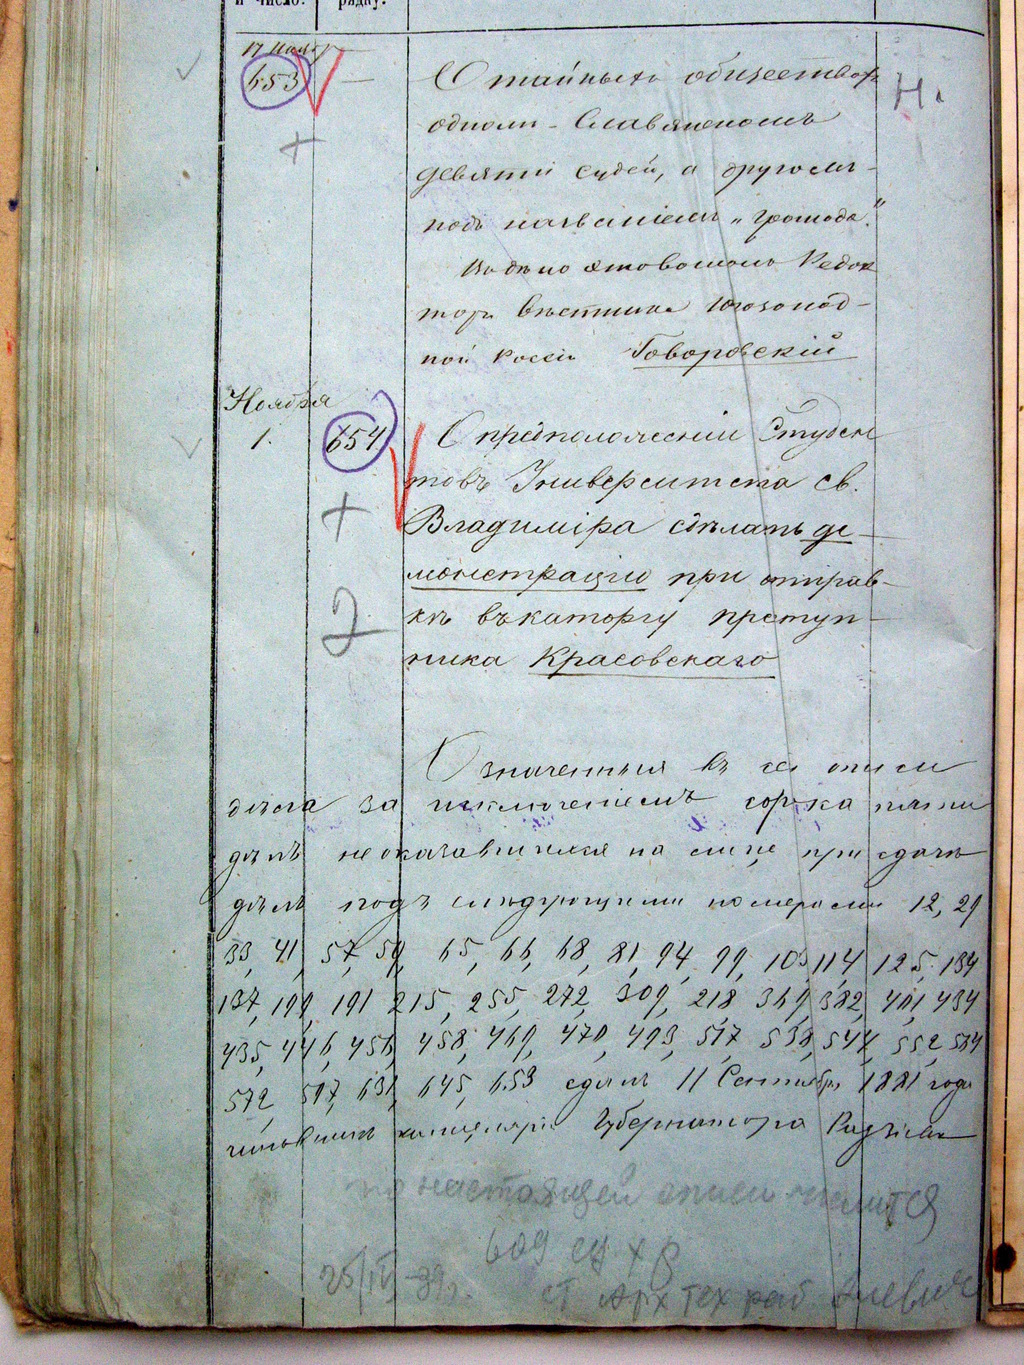 и число. рядку.
17 Нояб
653 —
О тайныхъ обществахъ
Н.
однома - Славянскомъ
девяти судей, а другомъ
подъ названіемъ „Громада".
Редак
торъ Вѣстника Югозапад-
ной Россіи Говорскій
Ноября
1. 654
О предположеніи Студен
товъ Университета Св.
Владиміра сдѣлать де-
монстрацію при отправ-
кѣ въ каторгу преступ-
ника Красовскаго
Означенныя въ сей описи
дѣла за исключеніемъ сорока пяти
дѣлъ неоказавшихся на лицо при сдачѣ
дѣлъ подъ слѣдующими номерами 12, 29
33, 41, 57, 59, 65, 66, 68, 81, 94, 99, 103, 114, 125, 134
137, 199, 191, 215, 255, 272, 309, 218, 369, 382, 401, 434
435, 446, 456, 458, 469, 470, 493, 517, 538, 544, 552, 564
572, 597, 631, 645, 653 сдалъ 11 Сентября 1881 года
чиновникъ канцеляріи Губернатора
по настоящей описи числится
609 ед хр
25/IV-39г. ст арх тех раб